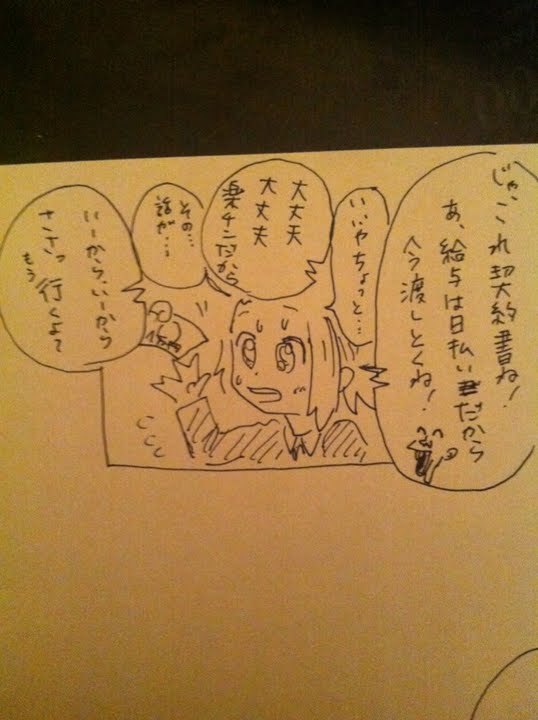 じゃ、これ契約書ね!
あ、給与は日払いだから
今渡しとくね!
いいやちょっと…
大丈夫
大丈夫
楽チンだから
その…
話が…
いーから、いーから
ささっ行くよて
もう
1万円